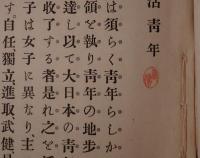 活靑年
は須らく靑年らしか
領を執り靑年の地步
達し以て大日本の靑
收了する者是れ之を
子は女子に異なり、主
す。自任獨立進取武健